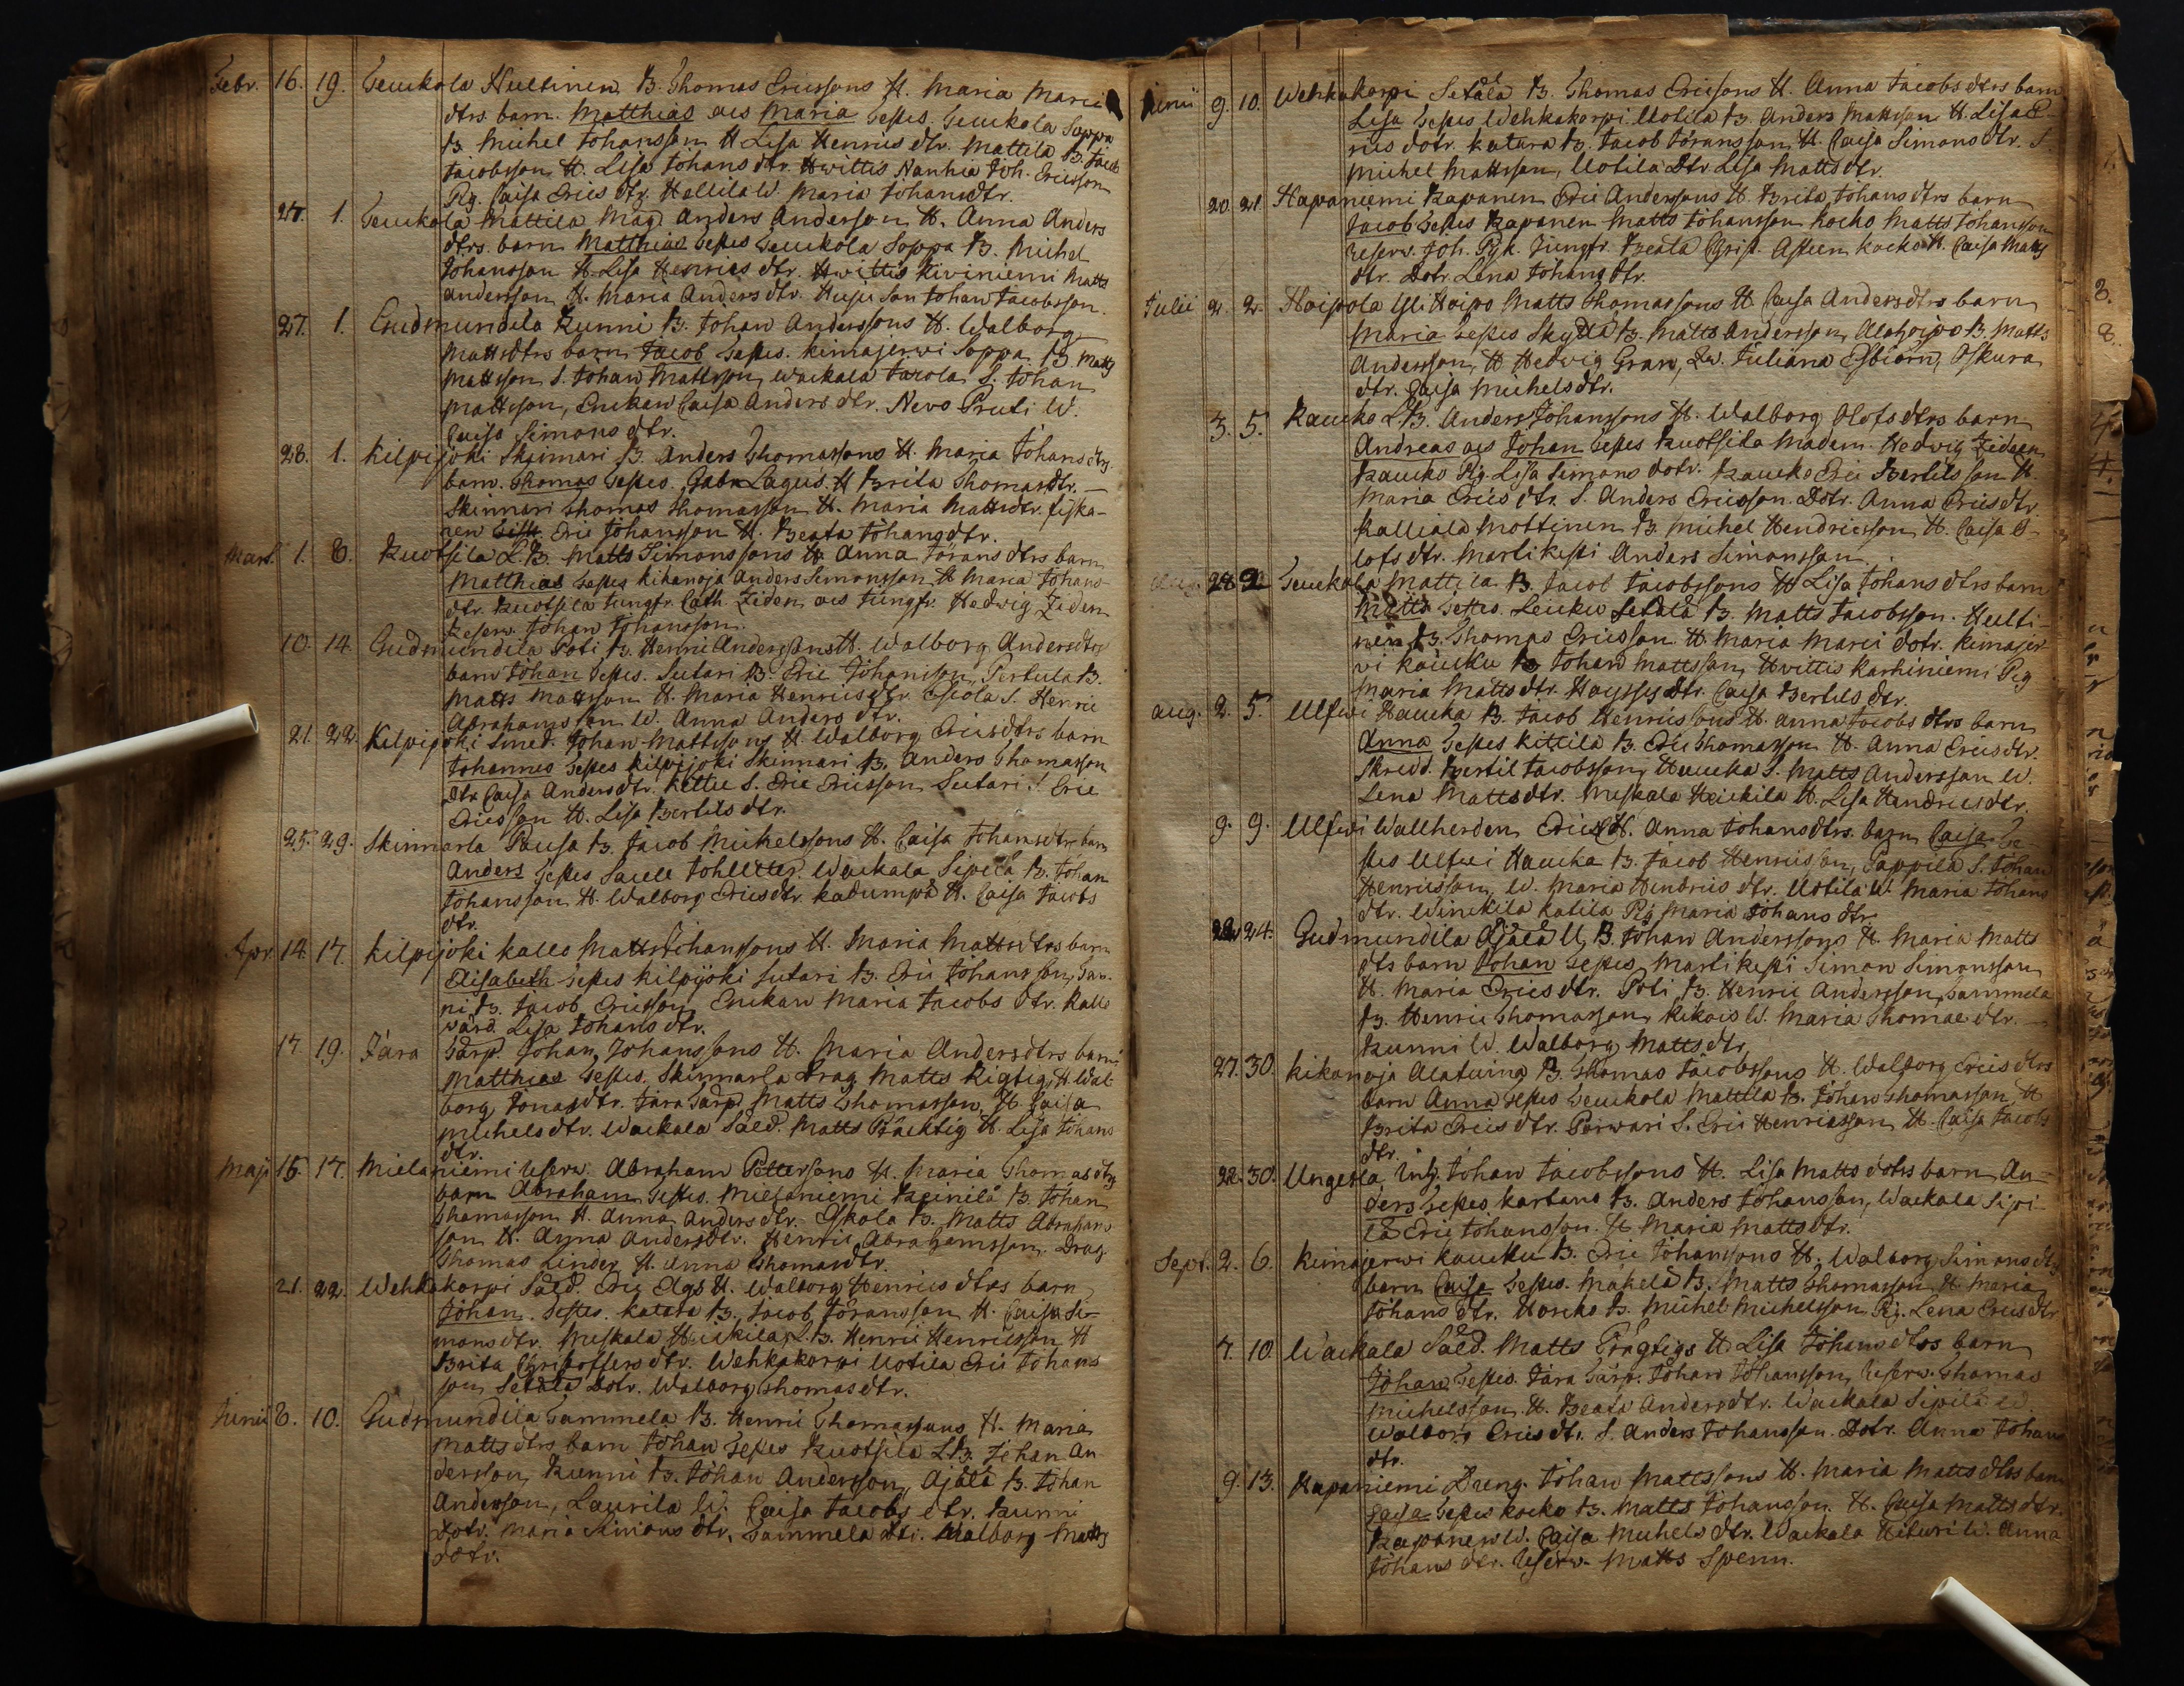 Febr. 16. 19. Seuckola Hultinen B. Thomas Ericssons H. Maria Marci
dtrs. barn. Matthias och Maria Testes. Seuckola Soppa
B. Michel Johansson H Lisa Henrics dtr. Mattila B. Jacob
Jacobsson H. Lisa Johans dtr. Hwittis Nanhia Joh. Ericsson
Pig. Caisa Erics dtr. Hellila W. Maria Johansdtr.
27. 1. Seuckola Mattila Mag Anders Anderson H. Anna Anders
dtrs. barn Matthias Testes Seuckola Soppa B. Michel
Johansson H. Lisa Henrics dtr. Hwittis Kiviniemi Matts
Andersson H. Maria Anders dtr. Husu Son Johan Jacobsson.
27. 1. Gudmundila Kunni B. Johan Anderssons H. Walborg
Mattsdtrs barn Jacob Testes. Kimajerwi Soppa B. Matts
Mattsson S. Johan Mattsson, Wackala Jarola S. Johan
Mattsson, Enckan Caisa Anders dtr. Nevo Pruti W.
Caisa Simons dtr.
28. 1. Kilpijoki Skinnari B. Anders Thomassons H. Maria Johansdtrs.
barn. Thomas Testes. Gabr Lagus. H Brita Thomasdtr. —
Skinnari Thomas Thomasson H. Maria Mattsdtr. fiska-
ren Eric Johansson H. Beata Johansdtr.
Mart. 1. 8. Kuotsila L. B. Matts Simonssons H. Anna Jörans dtrs barn
Matthias Testes Kikanoja Anders Simonsson H Maria Johans-
dtr. Kuotsila Jungfr. Cath. Ziden och Jungfr. Hedwig Ziden
Reserv. Johan Johansson.
10. 14. Gudmundila Poti B. Henric Anderssons H. Walborg Andersdtrs
barn Johan Testes. Sutari B. Eric Johansson, Pertula B.
Matts Mattsson H. Maria Henricsdtr. S. Henric
Abrahamsson W. Anna Anders dtr.
21. 22. Kilpijoki Smed. Johan Mattssons H. Walborg Ericsdtrs barn
Johannes Testes Kilpijoki Skinnari B. Anders Thomasson
Dtr Caisa Andersdtr. S. Eric Ericsson Sutari S. Eric
Ericsson H. Lisa Bertilsdtr.
25. 29. Skinnarla Pausa B. Jacob Michelssons H. Caisa Johansdtrs barn
Anders Testes Wackala Sipilä B. Johan
Johansson H. Walborg Ericsdtr. Kadumpä H. Caisa Jacobs
dtr.
Apr. 14. 17. Kilpijoki Kallo Matts Johanssons H. Maria Mattsdtrs barn
Elisabeth Testes Kilpijoki Sutari B. Eric Johansson, San-
ni B. Jacob Ericsson Enckan Maria Jacobs dtr. Kallo
Lisa Johansdtr.
17 19. Jära Johan Johanssons H. Maria Andersdtrs barn
Matthias Testes. Skinnarla Drag Matts Rigtig, H Wal
borg Jonasdtr. Jära Matts Thomasson, H. Caisa
Michelsdtr. Wackala Sold. Matts Präcktig H. Lisa Johans
dtr.
Maji 15. 17. Mielaniemi Reserv. Abraham Pettersons H. Maria Thomasdtrs
barn Abraham Testes. Mielaniemi Keinilä B. Johan
Thomasson H. Anna Andersdtr. Eskola B. Matts Abrahams
son H. Anna Andersdtr. Henric Abrahamsson. Drag
Thomas Linder H. Anna Thomasdtr.
21. 22. Wehkakorpi Sold. Eric Elgs H. Walborg Henrics dtrs barn
Johan. Testes. Katara B. Jacob Jöransson H. Caisa Si-
monsdtr. Muskala Heickila L. B. Henric Henricsson H
Brita Christoffersdtr. Wehkakorpi Uotila Eric Johans
son Setala Dotr. Walborg Thomasdtr.
Junii 8. 10. Gudmundila Sammela B. Henric Thomassons H. Maria
Mattsdtrs barn Johan Testes Kuotsila L B. Johan An
dersson, Kunni B. Johan Andersson, Ajala B. Johan
Anderson, Laurila W. Caisa Jacobs dtr. Kunni
Dotr. Maria Simons dtr, Sammela dtr. Walborg Matts
dotr.
Junii 9. 10. Wehkakorpi Setälä B. Thomas Ericssons H. Anna Jacobsdtrs barn
Lisa Testes Wehkakorpi Uotila B. Anders Mattsson H. Lisa E-
rics dotr. Katara B. Jacob Jöransson H. Caisa Simonsdtr. S.
Michel Mattsson, Uotila Dtr Lisa Mattsdtr.
20. 21. Hapaniemi Kaponen Eric Anderssons H. Brita Johansdtrs barn
Jacob Testes Kaponen Matts Johansson Kocko Matts Johansson
Reserv. Joh. Jungfr. Beata Christ. Asteen Kocko H. Caisa Matts
dtr. Dotr. Lena Johansdtr.
Julii 2. 2. Hoipola Yli Hoipo Matts Thomassons H Caisa Andersdtrs barn
Maria Testes Skyttä B. Matts Andersson, Alahoipo B. Matts
Andersson, H Hedvig Gran, Juliana Esbiörn,
dtr. Caisa Michelsdtr.
3. 5. Kaucko L B. Anders Johanssons H. Walborg Olofs dtrs barn
Andreas och Johan Testes Kuotsila Madam. Hedvig Zideen
Kaucko Pig. Lisa Simons dotr. Kaucko Eric Bertilsson H.
Maria Erics dtr. S. Anders Ericsson. Dotr. Anna Ericsdtr.
Kalliala Mottinen B. Michel Hendricsson H. Caisa O-
lofsdtr. Martikesi Anders Simonsson
Aug. 28 Seuckola Mattila B Jacob Jacobssons H Lisa Johansdtrs barn
Matts Testes. Setälä B. Matts Jacobsson. Hulti-
nen B. Thomas Ericsson H. Maria Marci dotr. Kimajer
vi Kaucku B Johan Mattsson, Hvittis Karhiniemi Pig
Maria Mattsdtr. dtr. Caisa Bertils dtr.
Aug. 2. 5. Ulfwi Haucka B. Jacob Henricssons H. Anna Jacobs dtrs barn
Anna Testes Kittila B. Eric Thomasson H. Anna Ericsdtr.
Skredd. Bertil Jacobsson, Haucka S. Matts Andersson W.
Lena Mattsdtr. Muskala Heickila H. Lisa Hendricsdtr.
9. 9. Ulfwi Wallherden Erics H. Anna Johansdtrs. barn Caisa Te-
stes Ulfwi Haucka B. Jacob Henricsson, Pappila S. Johan
Henricsson, W. Maria Hendrics dtr. Uotila W. Maria Johans
dtr. Winckila Katila Pig Maria Johans dtr.
22 24. Gudmundila Ajala U, B. Johan Anderssons H. Maria Matts
dts barn Johan Testes, Martikesi Simon Simonsson
H. Maria Ericsdtr. Poti B. Henric Andersson, Sammela
B. Henric Thomasson, Kikois W. Maria Thomae dtr. —
Kunni W. Walborg Matts dtr
27. 30. Kikanoja Alatuina B. Thomas Jacobssons H. Walborg Ericsdtrs
barn Anna Testes Seuckola Mattila B. Johan Thomasson H
Brita Ericsdtr. Porwari S. Eric Henricsson H. Caisa Jacobs
dtr.
22. 30. Ungesla Johan Jacobssons H. Lisa Matts dotrs barn An-
ders Testes Kartano B. Anders Johansson, Wackala Sipi-
lä Eric Johansson. H Maria Matts dtr.
Sept. 2. 6. Kimajerwi Kaucku B. Eric Johanssons H. Walborg Simonsdtrs
barn Caisa Testes. Makelä B. Matts Thomasson H. Maria
Johans dtr. Horcko B. Michel Michelsson Pig. Lena Ericsdtr
7. 10. Wackala Sold. Matts Prägtigs H. Lisa Johansdtrs barn
Johan Testes. Jära Johan Johansson, Reserv. Thomas
Michelsson. H. Beata Andersdtr. Wackala Sipilä W.
Walborg Ericsdtr. S. Anders Johansson. Dotr. Anna Johans
dtr.
9. 13. Hapaniemi Dreng. Johan Mattssons H. Maria Mattsdtrs barn
Caisa Testes Kocko B. Matts Johansson. H. Caisa Mattsdtr.
Kaponen W. Caisa Michels dtr. Wackala Hituri W. Anna
Johans dtr. Reserv. Matts Spenn.